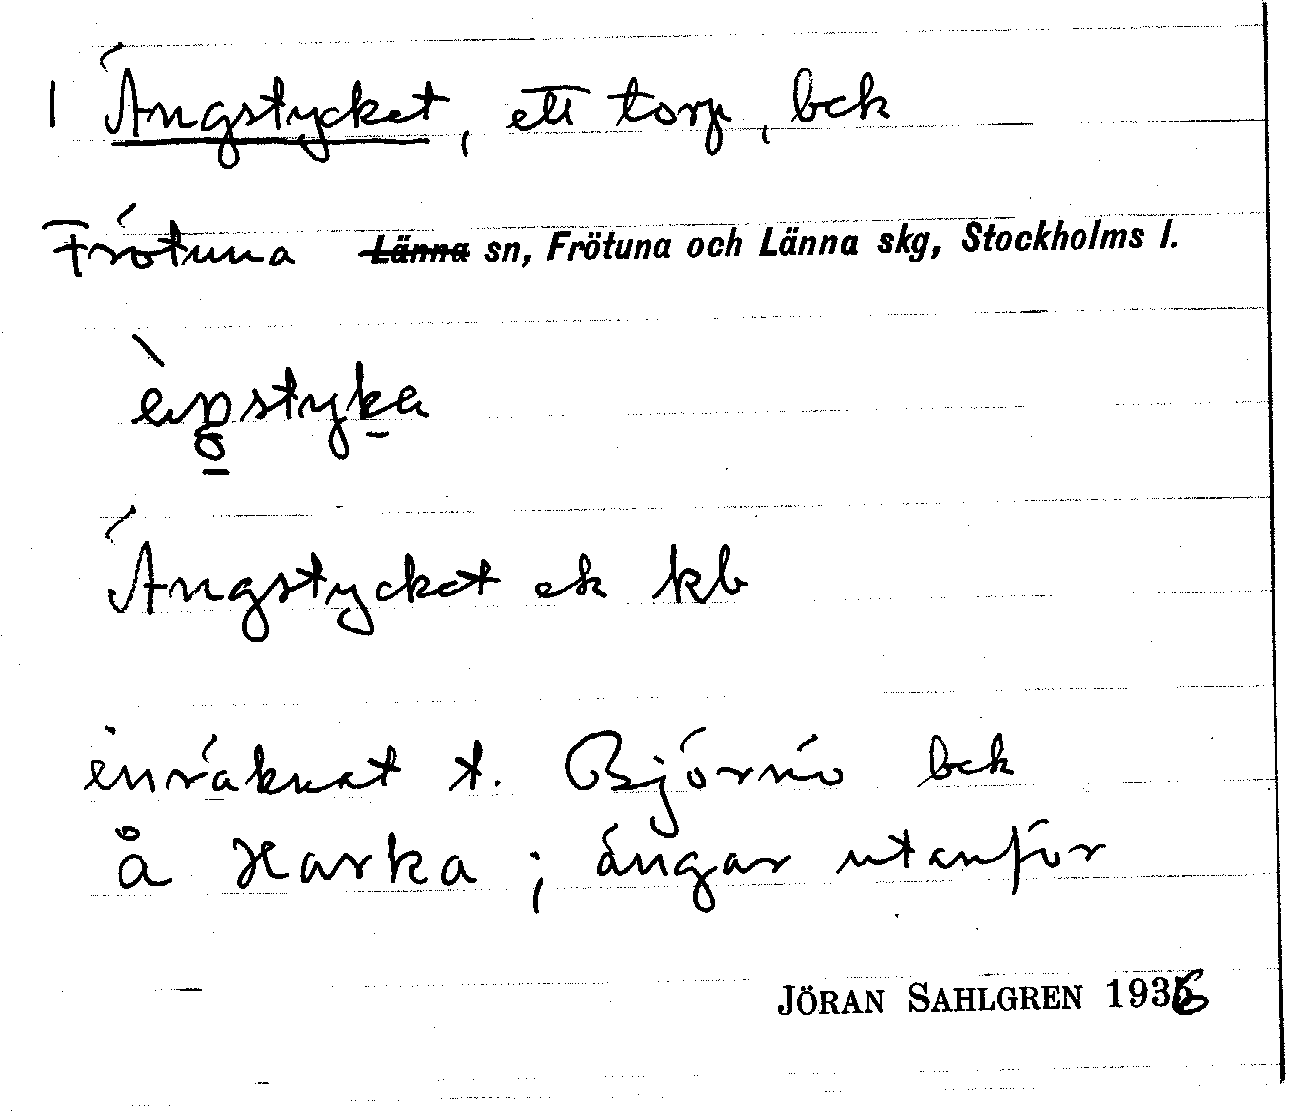 1 Ängstycket, ett torp, bek
Frötuna Länna sn, Frötuna och Länna skg, Stockholms l.
Ängstycket ek kb
inräknat t. Björnö bek
å Harka; ängar utanför
JÖRAN SAHLGREN 1936